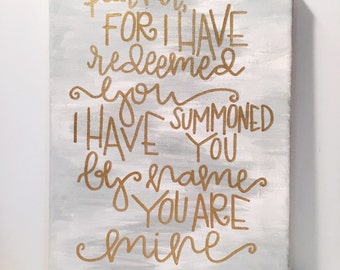 FOR I HAVE
redeemed
you
I HAVE SUMMONED
YOU
by name
YOU ARE
mine